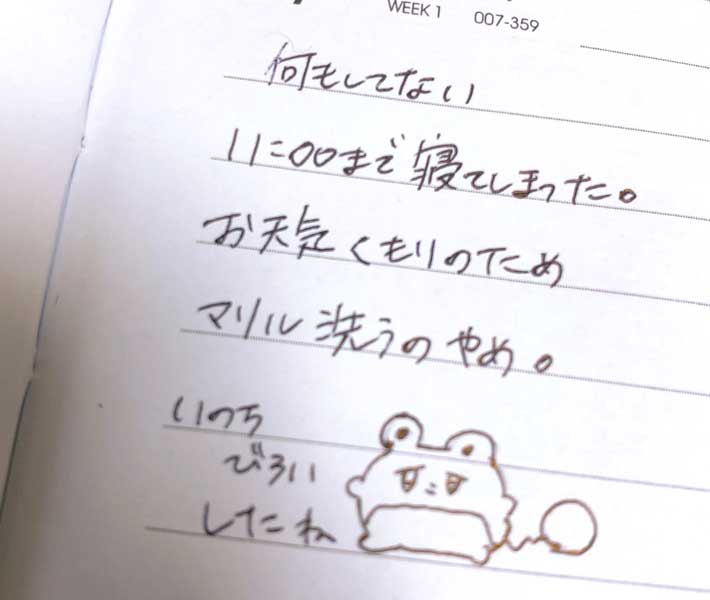 WEEK 1 007-359
何もしてない
11:00まで寝てしまった。
お天気くもりのため
マリル洗うのやめ。
いのち
びろい
したね